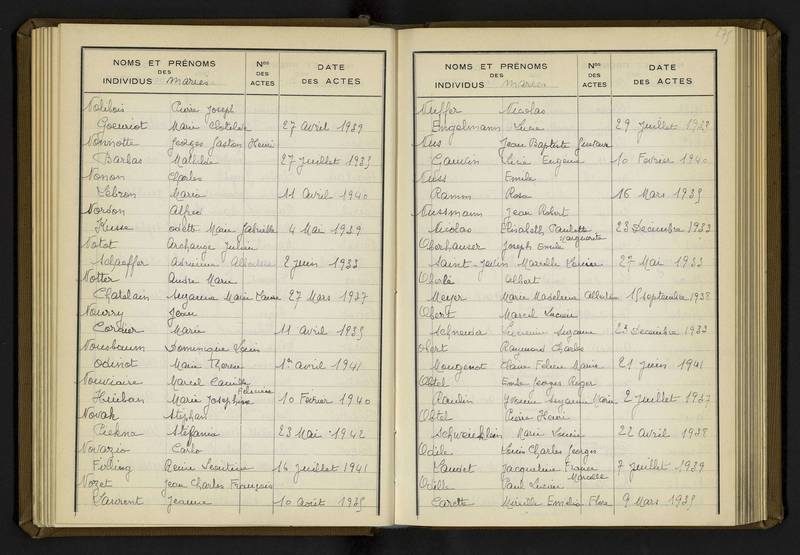 NOMS ET PRÉNOMS
DES
INDIVIDUS mariés
Nos
DES
ACTES
DATE
DES ACTES
Nolibois Pierre Joseph
Marie Clotilde 27 avril 1939
Nonnotte Georges Gaston Henri
Barbas Mathilde 27 juillet 1935
Nonon Charles
Lebron Maria 11 Avril 1940
Nordon Alfred
Husse Odette Marie Gabrielle 4 Mai 1939
Notot Archange Julien
Schaeffer Adrienne 2 juin 1933
Notter André Marie
Chatelain Suzanne Marie 27 Mars 1937
Nourry Jean
Cordier Marie 11 avril 1935
Nousbaum Dominique Louis
Odinot Marie Thérèse 1er avril 1941
Nouviaire Marcel Camille
Marie Joséphine 10 Février 1940
Novak Stéphan
Piekna Stéfania 23 Mai 1942
Novario Carlo
Firling Reine 16 juillet 1941
Nozet Jean Charles François
Laurent Jeanne 10 août 1935
NOMS ET PRÉNOMS
DES
INDIVIDUS mariés
Nos
DES
ACTES
DATE
DES ACTES
Nuffer Nicolas
Engelmann Lucie 29 juillet 1939
Nus Jean Baptiste Gustave
Gauvin Lucie Eugénie 10 Février 1940
Nuss Emile
Ramm Rosa 16 Mars 1935
Nussmann Jean Robert
Nicolas Elisabeth Paulette Marguerite 23 Décembre 1933
Oberhauser Joseph Emile
Saint-Jevin Marcelle Lucien 27 Mai 1933
Oberlé Albert
Meyer Marie Madeleine 15 septembre 1938
Obert Marcel Lucien
Schneider Lucienne Suzanne 23 Décembre 1933
Obert Raymond Charles
Mougenot Claire Félicie Marie 21 juin 1941
Obtel Emile Georges Roger
Raulin Yvonne Suzanne Marie 2 juillet 1937
Obtel Pierre Henri
Schweicklin Marie Louise 22 avril 1938
Odile Louis Charles Georges
Maudet Jacqueline France Marcelle 7 juillet 1939
Odille Paul Lucien
Carette Mireille Emélia Flore 9 Mars 1935